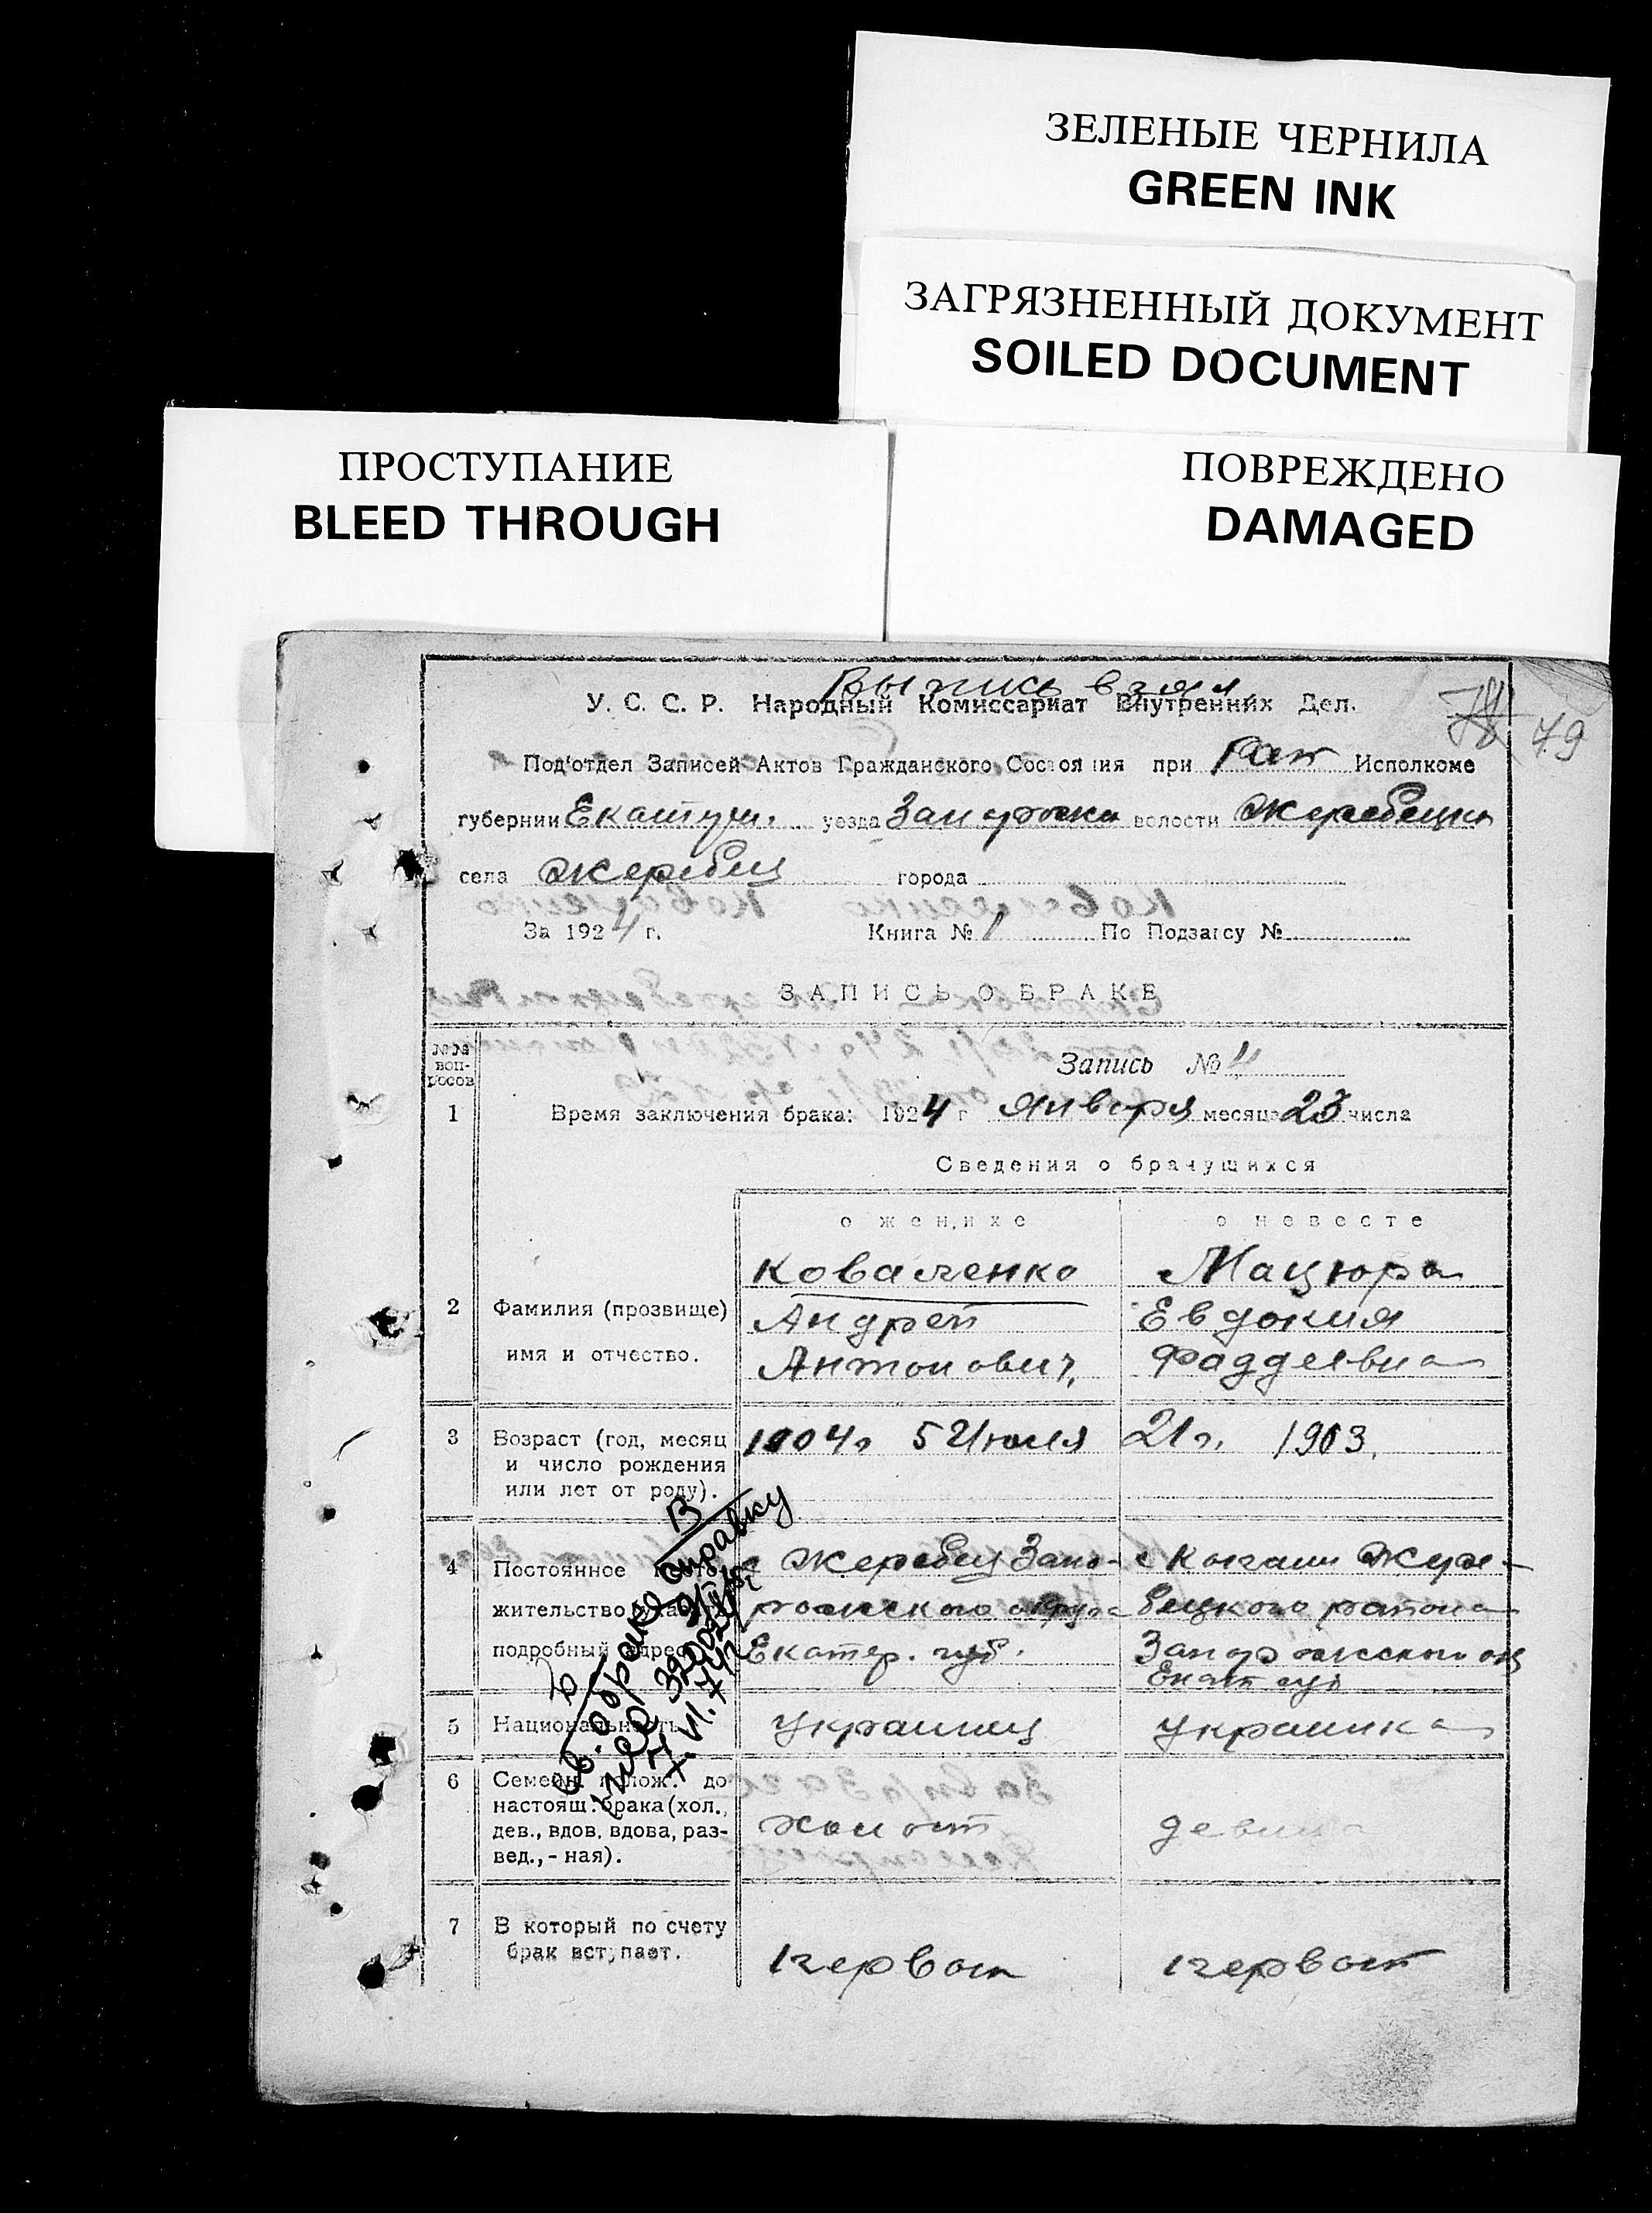 ЗЕЛЕНЫЕ ЧЕРНИЛА
GREEN INK
ЗАГРЯЗНЕННЫЙ ДОКУМЕНТ
SOILED DOCUMENT
ПРОСТУПАНИЕ
BLEED THROUGH
ПОВРЕЖДЕНО
DAMAGED
Выпись взял
У. С. С. Р. Народный Комиссариат Внутренних Дел.
78 79
Под'отдел Записей Актов Гражданского Состояния при Рай Исполкоме
губернии уезда волости
села Жеребец города
За 1924 г. Книга № 1 По Подзагсу №
ЗАПИСЬ О БРАКЕ
№№ воп-
росов
Запись № 4
1 Время заключения брака: 1924 г Января месяца 23 числа
Сведения о брачущихся
о женихе о невесте
Коваленко Мацюра
2 Фамилия (прозвище) Андрей Евдокия
имя и отчество. Антонович Фаддеевна
3 Возраст (год, месяц 1904 г 5 Июля 21 г. 1903.
и число рождения
или лет от роду).
4 Постоянное место- с Жеребец Запо- с Жере-
жительство указать рожского округа бецкого района
подробный адрес Екатер. губ. Запорожского
Екат губ
5 Национальность украинец украинка
6 Семейн. полож. до
настоящ. брака (хол., холост девица
дев., вдов, вдова, раз-
вед., - ная).
7 В который по счету первый первый
брак вступает.
В справку
о браке